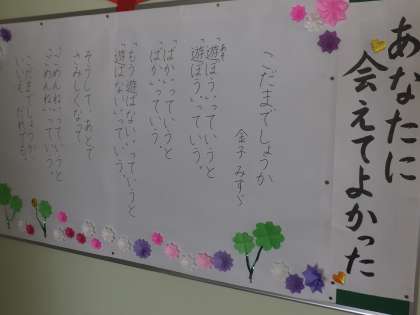 あなたに
会えてよかった
こだまでしょうか
金子 みすゞ
「遊ぼう」っていうと
「遊ぼう」っていう。
「ばか」っていうと
「ばか」っていう。
「もう遊ばない」っていうと
「遊ばない」っていう。
そうして、あとで
さみしくなって、
「ごめんね」っていうと
「ごめんね」っていう。
こだまでしょうか、
いいえ、だれでも。